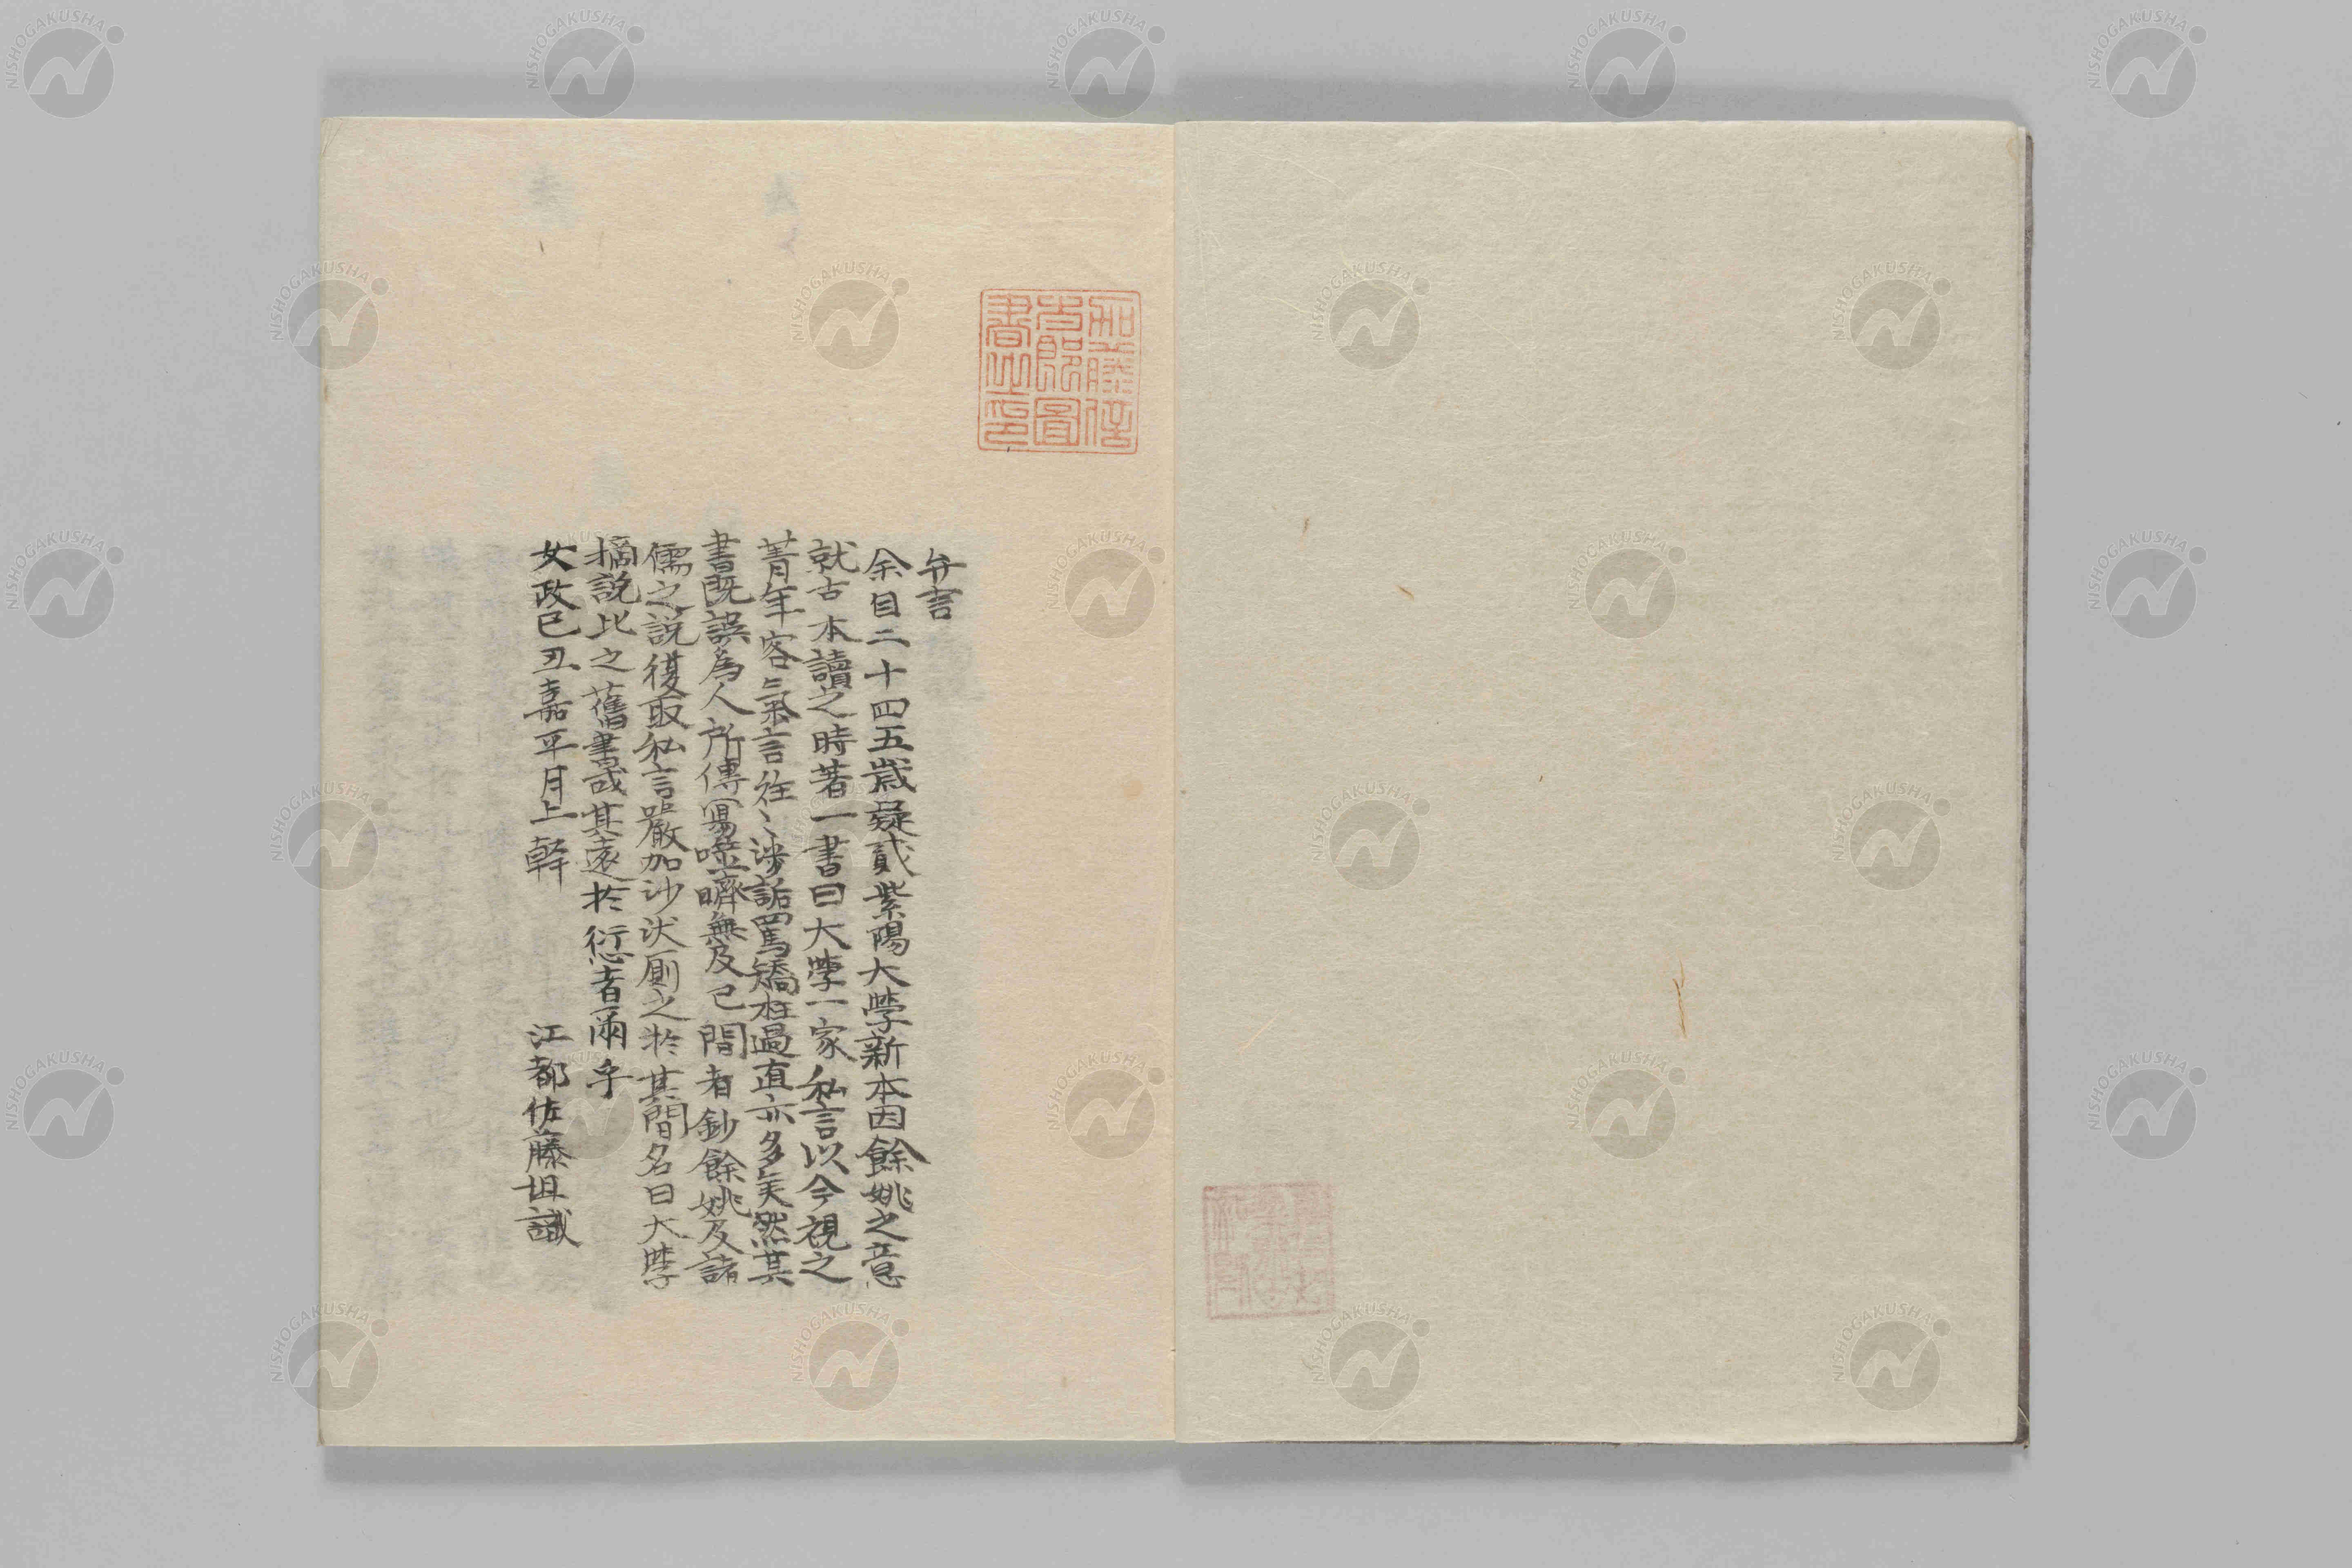 弁言
余自二十四五歳疑貳紫陽大學新本因餘姚之意
就古本讀之時著一書曰大學一家私言以今視之
菁年客氣言往〻渉詬罵矯枉過直亦多矣然其
書既誤為人所傳寫噬臍無及已間者鈔餘姚及諸
儒之説復取私言嚴加沙汰厠之於其間名曰大學
摘説比之舊書或其遠於衍愆者爾乎
文政己丑嘉平月上幹
江都佐藤坦識
加藤信
古郎圖
書之印
NISHOGAKUSHA